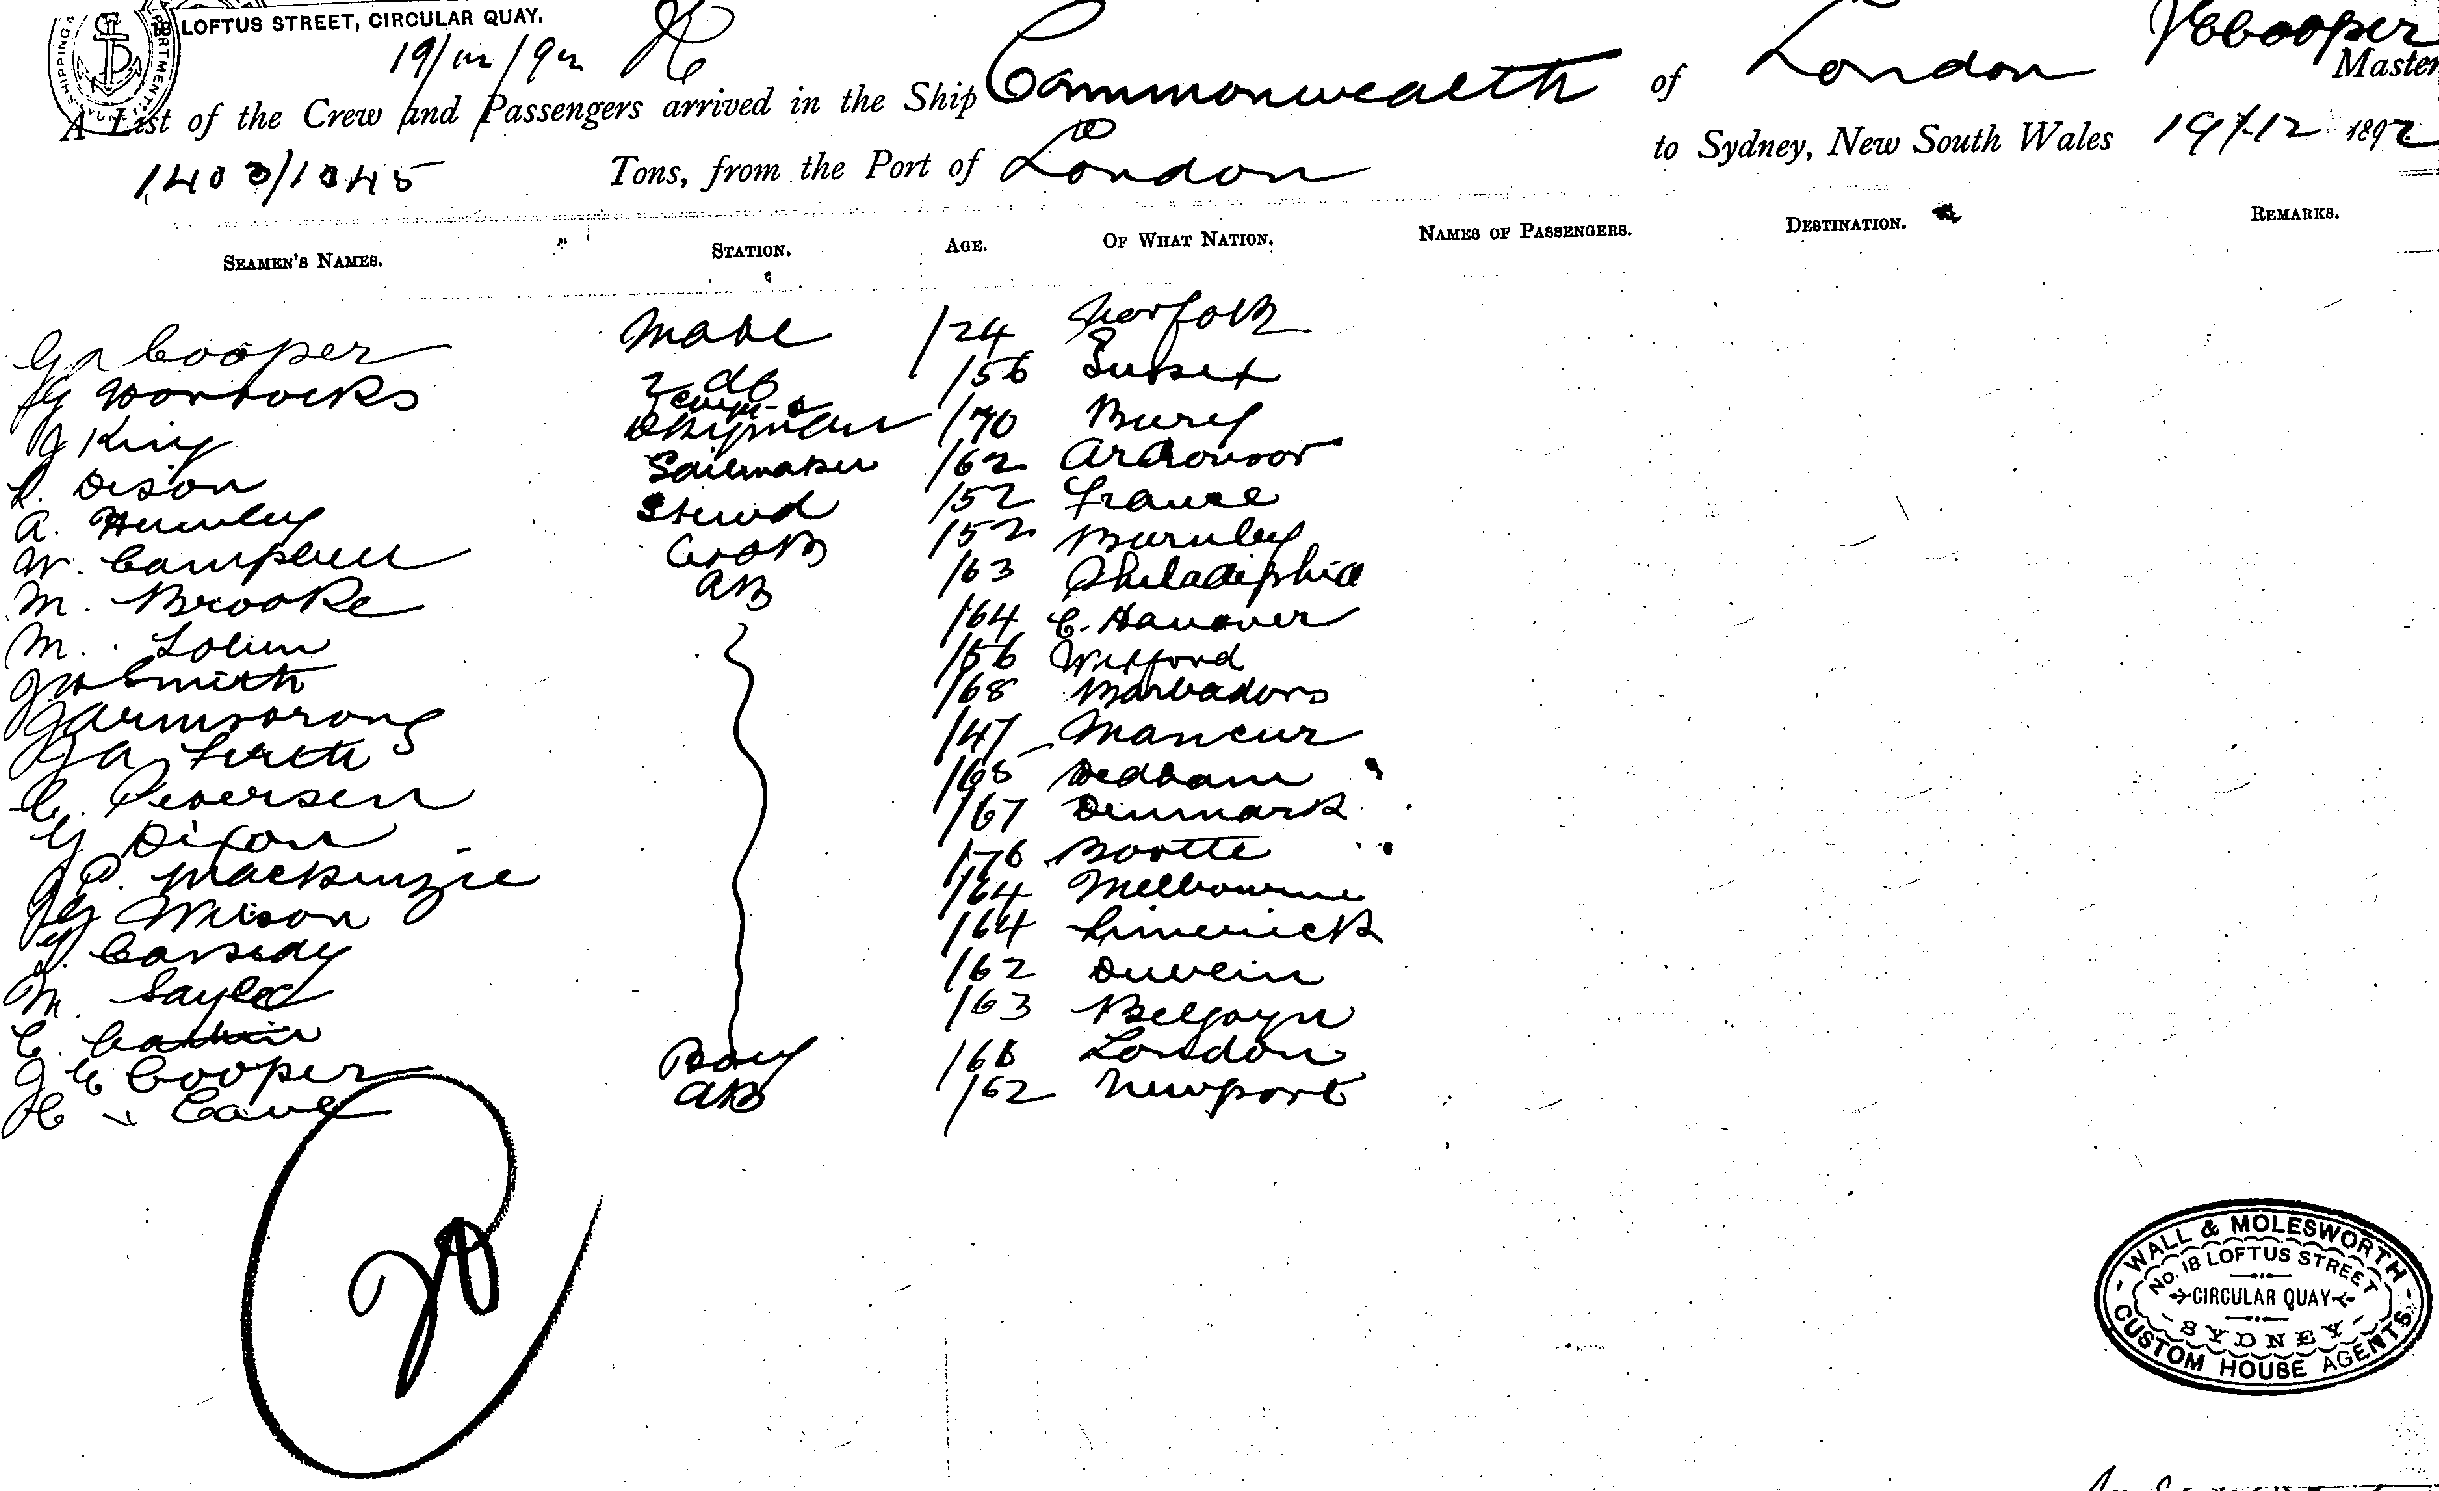 LOFTUS STREET, CIRCULAR QUAY.
J E Cooper
Master
A List of the Crew and Passengers arrived in the Ship Commonwealth of London
1403/1345 Tons, from the Port of London to Sydney, New South Wales 19/12 1892
SEAMEN'S NAMES. STATION. AGE. OF WHAT NATION. NAMES OF PASSENGERS. DESTINATION. REMARKS.
Cooper Mate /24 Norfolk
2 do /56 Sussex
J King /70 Bury
Dison Sailmaker /62
A. Stewd /52 France
W. Campbell Cook /52 Burnley
M. Brooke AB /63 Philadelphia
M. /64 Hanover
Smith /56 Wexford
Armstrong /68 Barbadoes
Firth /47
C. Petersen /68 Dedham
G Dixon /67 Denmark
P. Mackenzie /76 Bootle
Wilson /64 Melbourne
Cassidy /64 Limerick
M. /62 Dublin
C. /63
J E Cooper Boy /66 London
H Cave AB /62 Newport
WALL & MOLESWORTH
No. 18 LOFTUS STREET
CIRCULAR QUAY
SYDNEY
CUSTOM HOUSE AGENTS